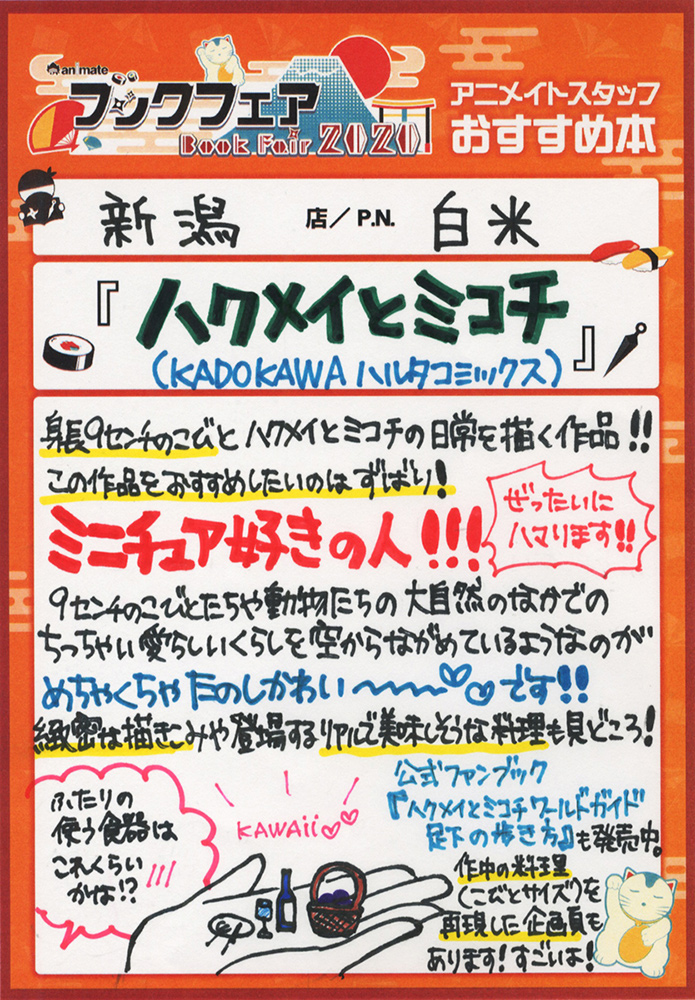 animate
ブックフェア
Book Fair 2020
アニメイトスタッフ
おすすめ本
新潟 店／P.N. 白米
『ハクメイとミコチ
（KADOKAWA ハルタコミックス）』
身長9センチのこびとハクメイとミコチの日常を描く作品!!
この作品をおすすめしたいのはずばり!
ミニチュア好きの人!!!
ぜったいに
ハマります!!
9センチのこびとたちや動物たちの大自然のなかでの
ちっちゃい愛らしいくらしを空からながめているようなのが
めちゃくちゃたのしかわい〜〜〜♡♡です!!
緻密な描きこみや登場するリアルで美味しそうな料理も見どころ!
ふたりの
使う食器は
これくらい
かな!?
KAWAii♡♡
公式ファンブック
『ハクメイとミコチワールドガイド
足下の歩き方』も発売中。
作中の料理
(こびとサイズ)を
再現した企画頁も
あります!すごいよ!